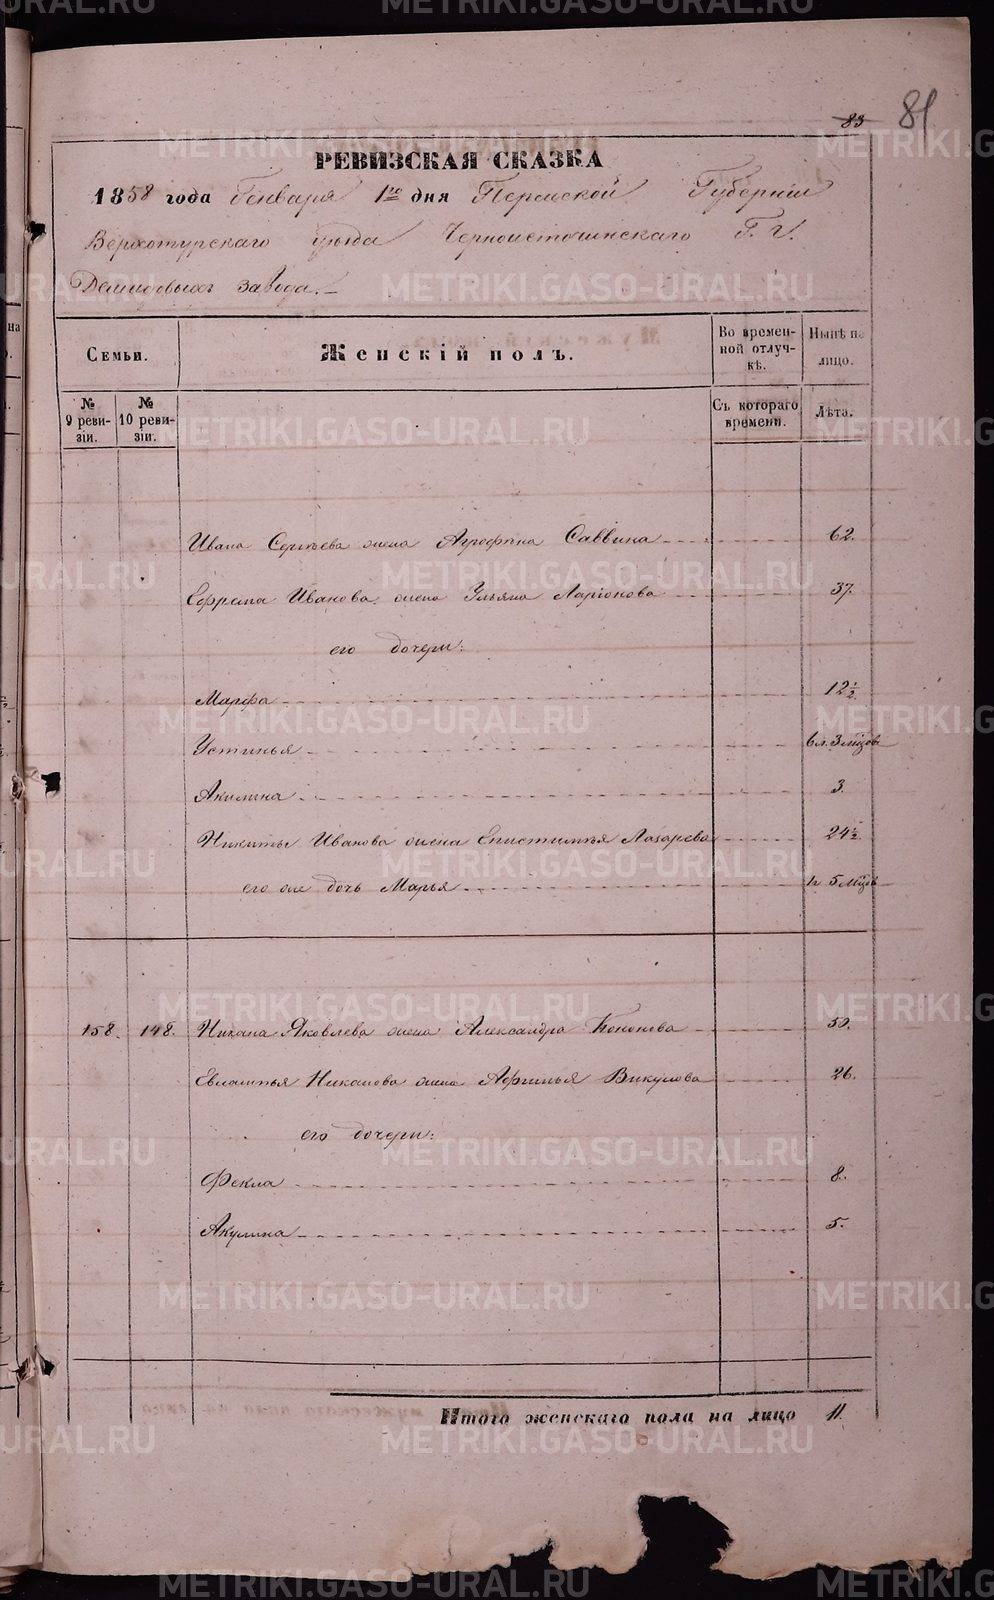 83 81
РЕВИЗСКАЯ СКАЗКА
1858 года Генваря 1го дня Пермской Губернiи
Верхотурскаго уѣзда Черноисточинскаго Г. г.
Демидовыхъ завода.
Семьи.
Женскiй полъ.
Во времен-
ной отлуч-
кѣ.
Нынѣ на
лицо.
№
9 реви-
зiи.
№
10 реви-
зiи.
Съ котораго
времени.
Лѣта.
Ивана Сергѣева жена Агрофѣна Саввина 62.
Ефрема Иванова жена Ульяна Ларiонова 37.
его дочери:
Марфа 12½
Устинья 6 л. 3 мѣцов
Акилина 3.
Никиты Иванова жена Епистимья Лазарева 24½
его же дочь Марья 5 мѣцов
158. 148. Яковлева жена Александра 50.
Евлампья жена Афимья Викулова 26.
его дочери:
Фекла 8.
Акулина 5.
Итого женскаго пола на лицо 11.
METRIKI.GASO-URAL.RU